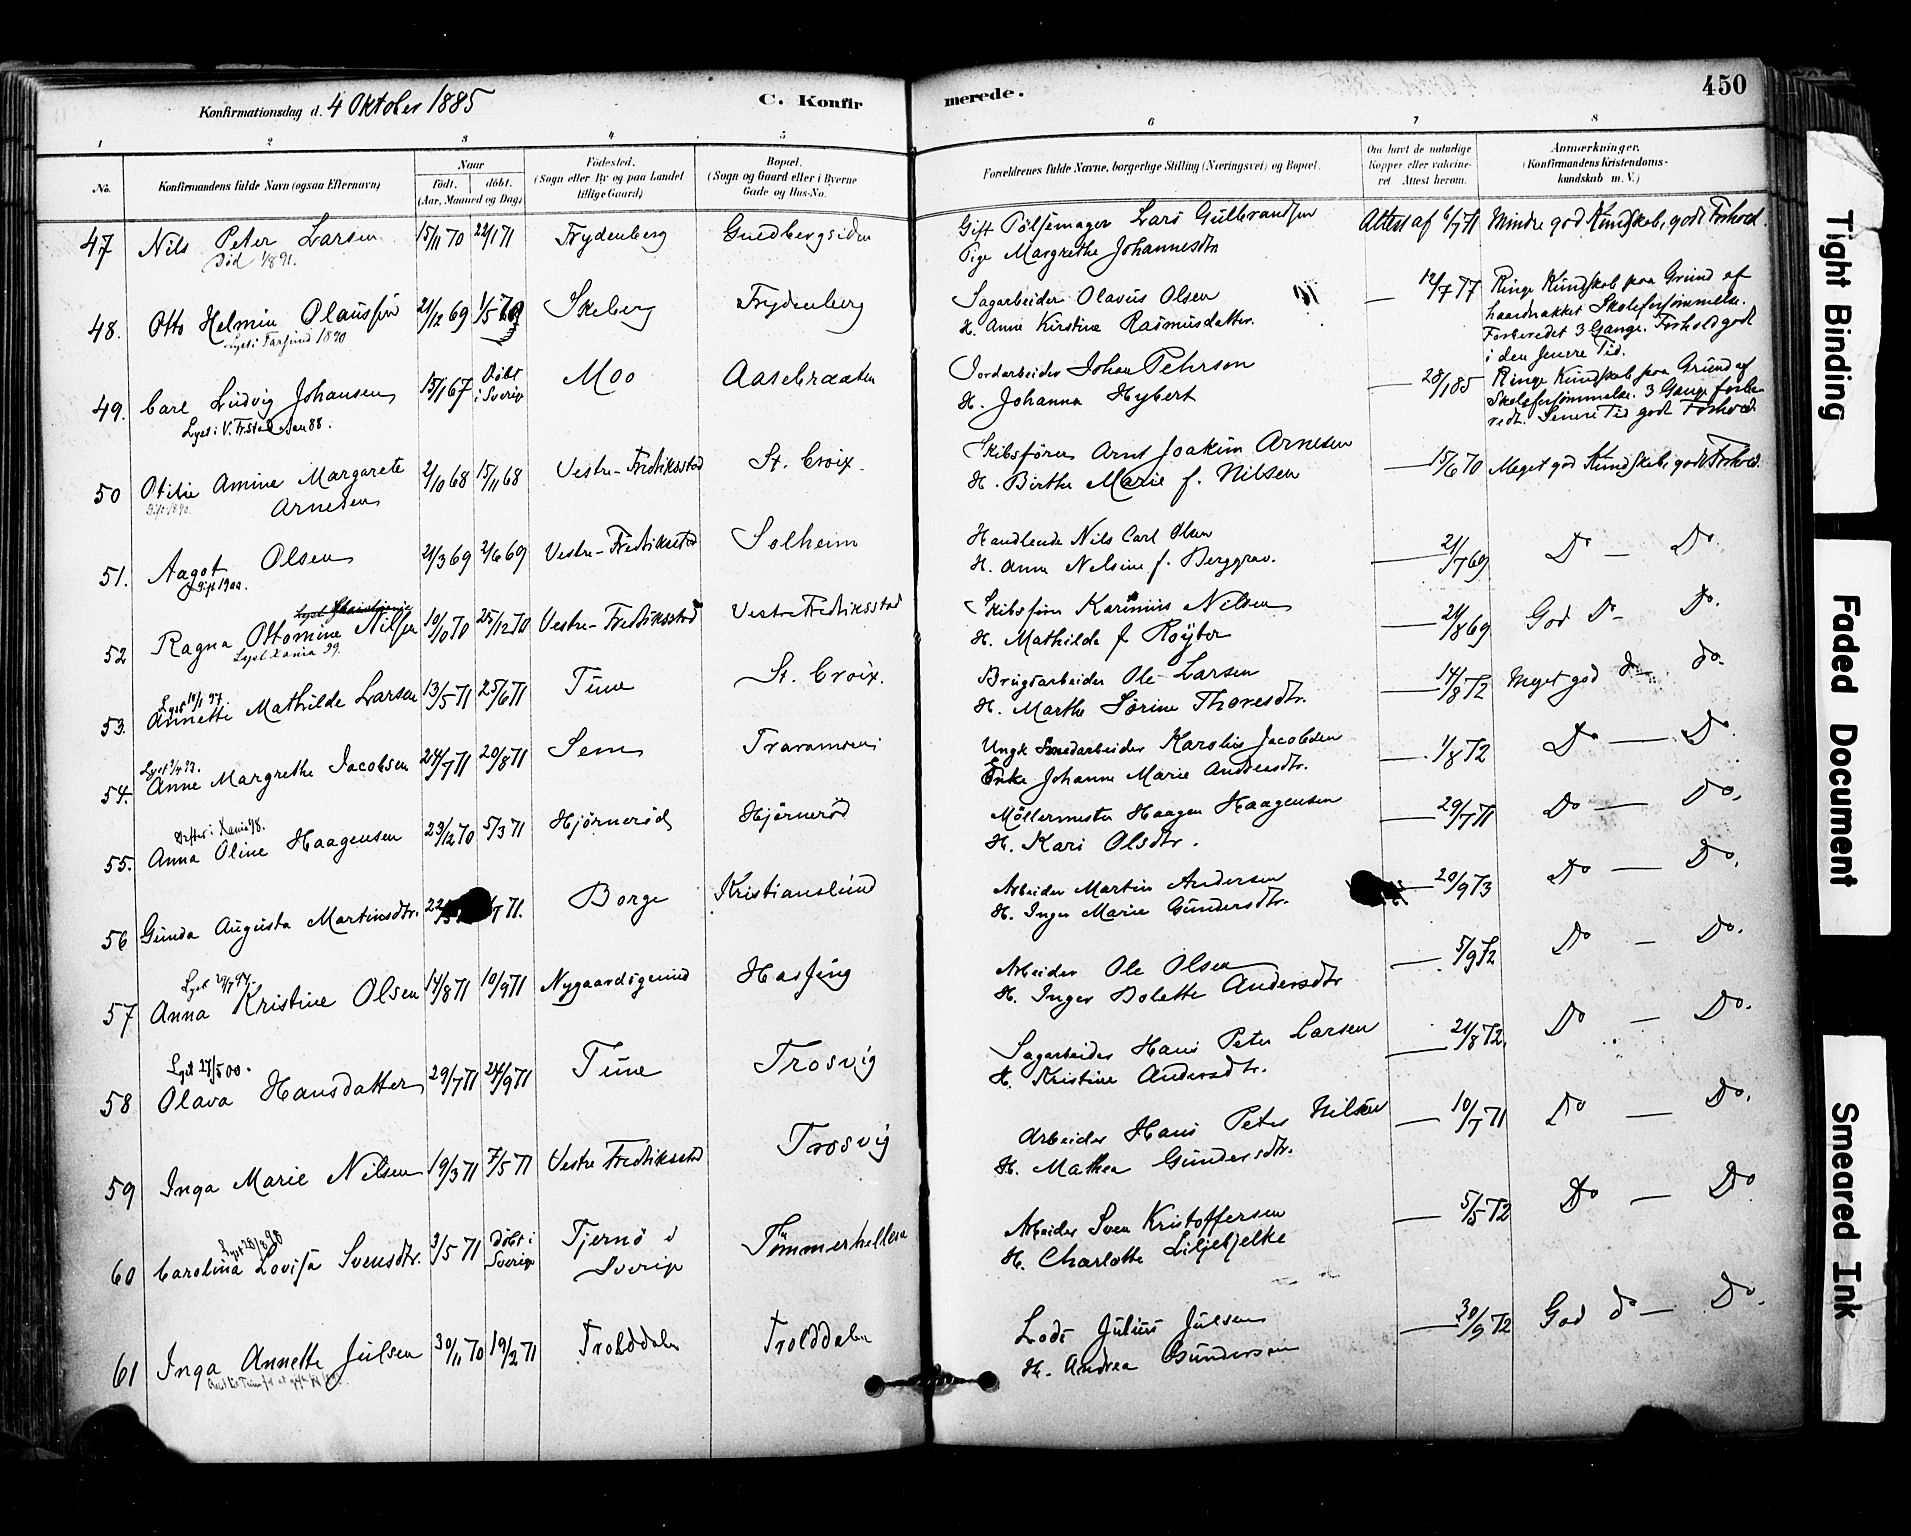 450
Konfirmationsdag d. 4 Oktober 1885
C. Konfirmerede.
1 2 3 4 5 6 7 8
No. Konfirmandens fulde Navn (ogsaa Efternavn)
Naar
født. døbt.
(Aar, Maaned og Dag)
Fødested.
(Sogn eller By og paa Landet
tillige Gaard)
Bopæl.
(Sogn og Gaard eller i Byerne
Gade og Hus-No.
Forældrenes fulde Navne, borgerlige Stilling (Næringsvei) og Bopæl.
Om havt de naturlige
Kopper eller vakcine-
ret. Attest herom.
Anmærkninger.
(Konfirmandens Kristendoms-
kundskab m. V.)
47 Nils Peter Larsen 15/11 70 22/1 71 Frydenberg Guldbergsiden Gift Pølsemager Lars Gulbrandsen Attest af 6/7 71 Mindre god Kundskab, godt Forhold.
Død 1/8 91.
Pige Margrethe Johannesdtr
48. Otto Helmin Olaussen 21/12 69 1/5 70 Skeberg Frydenberg Sagarbeider Olavus Olsen — 12/7 77 Ringe Kundskab paa Grund af
Lyst i Farsund 1890
H. Anne Kirstine Rasmusdatter.
haardnakket Skoleforsømmelse.
Forberedet 3 Gange. Forhold godt
i den senere Tid.
49. Carl Ludvig Johansen 15/1 67 Døbt i Sverige Moo Aasebraaten Jordarbeider Johan Pehrson — 28/1 85 Ringe Kundskab paa Grund af
Lyst i V. Fr.stad Jan 88.
H. Johanna Hybert
Skoleforsømmelse. 3 Gange forbe-
redt. Senere Tid godt Forhold
50 Otilie Amine Margarete 2/10 68 15/11 68 Vestre-Fredriksstad St. Croix. Skibsfører Arnt Joakim Arnesen — 15/6 70 Meget god Kundskab, godt Forhold
Gift 1890.
Arnesen
H. Birthe Marie f. Nilsen
51. Aagot Olsen 21/3 69 2/6 69 Vestre-Fredriksstad Solheim Handlende Nils Carl Olsen — 21/7 69 Do — Do
Gift 1900.
H. Anna Nelsine f. Berggrav.
Lyst Kristiania
52 Ragna Ottomine Nilsen 10/10 70 25/12 70 Vestre-Fredriksstad Vestre Fredriksstad Skibsfører Karinius Nilsen — 21/8 69 God Do — Do.
Lyst Xania 99.
H. Mathilde f. Røyter
Lyst 10/1 97.
53. Annette Mathilde Larsen 13/5 71 25/6 71 Tune St. Croix. Brugsarbeider Ole Larsen — 14/8 72 Meget god do — do.
H. Marthe Sørine Thoresdtr.
Lyst 9/4 93.
54. Anne Margrethe Jacobsen 24/7 71 20/8 71 Sem Ungk Smedarbeider Karolius Jacobsen — 1/8 72 Do — Do
Enke Johanne Marie Andersdtr.
Xania 98.
55. Anna Oline Haagensen 23/12 70 5/3 71 Hjørnerød Hjørnerød Møllermester Haagen Haagensen — 29/7 71 Do — Do.
H. Kari Olsdtr.
56 Gunda Augusta Martinsdtr. 22/ /7 71. Borge Kristianslund Arbeider Martin Andersen — 20/9 73 Do — Do.
H. Inger Marie Gundersdtr.
Lyst 20/7 94.
57 Anna Kristine Olsen 14/8 71 10/9 71 Nygaardsgrund Hassing Arbeider Ole Olsen — 5/9 72 Do — Do.
H. Inger Bolette Andersdtr
Lyst 27/5 00.
58 Olava Hansdatter 29/7 71 24/9 71 Tune Trosvig Sagarbeider Hans Peter Larsen — 21/8 72. Do — Do.
H. Kristine Andersdtr.
59 Inga Marie Nilsen 19/3 71 7/5 71 Vestre Fredriksstad Trosvig Arbeider Hans Peter Nilsen — 10/7 71 Do — Do.
H. Mathea Gundersdtr.
Lyst 28/8 90
60 Carolina Lovisa Svensdtr. 3/5 71 Døbt i Sverige Tjernö i Sverige Tømmerhellen Arbeider Sven Kristoffersen — 5/5 72 Do — Do
H. Charlotte Liljebjelke
61 Inga Annette Julsen 30/11 70 19/2 71 Trolddalen Trolddalen Lods Julius Julsen — 30/9 72 God do — Do.
H. Andrea Gundersen
Tight Binding
Faded Document
Smeared Ink